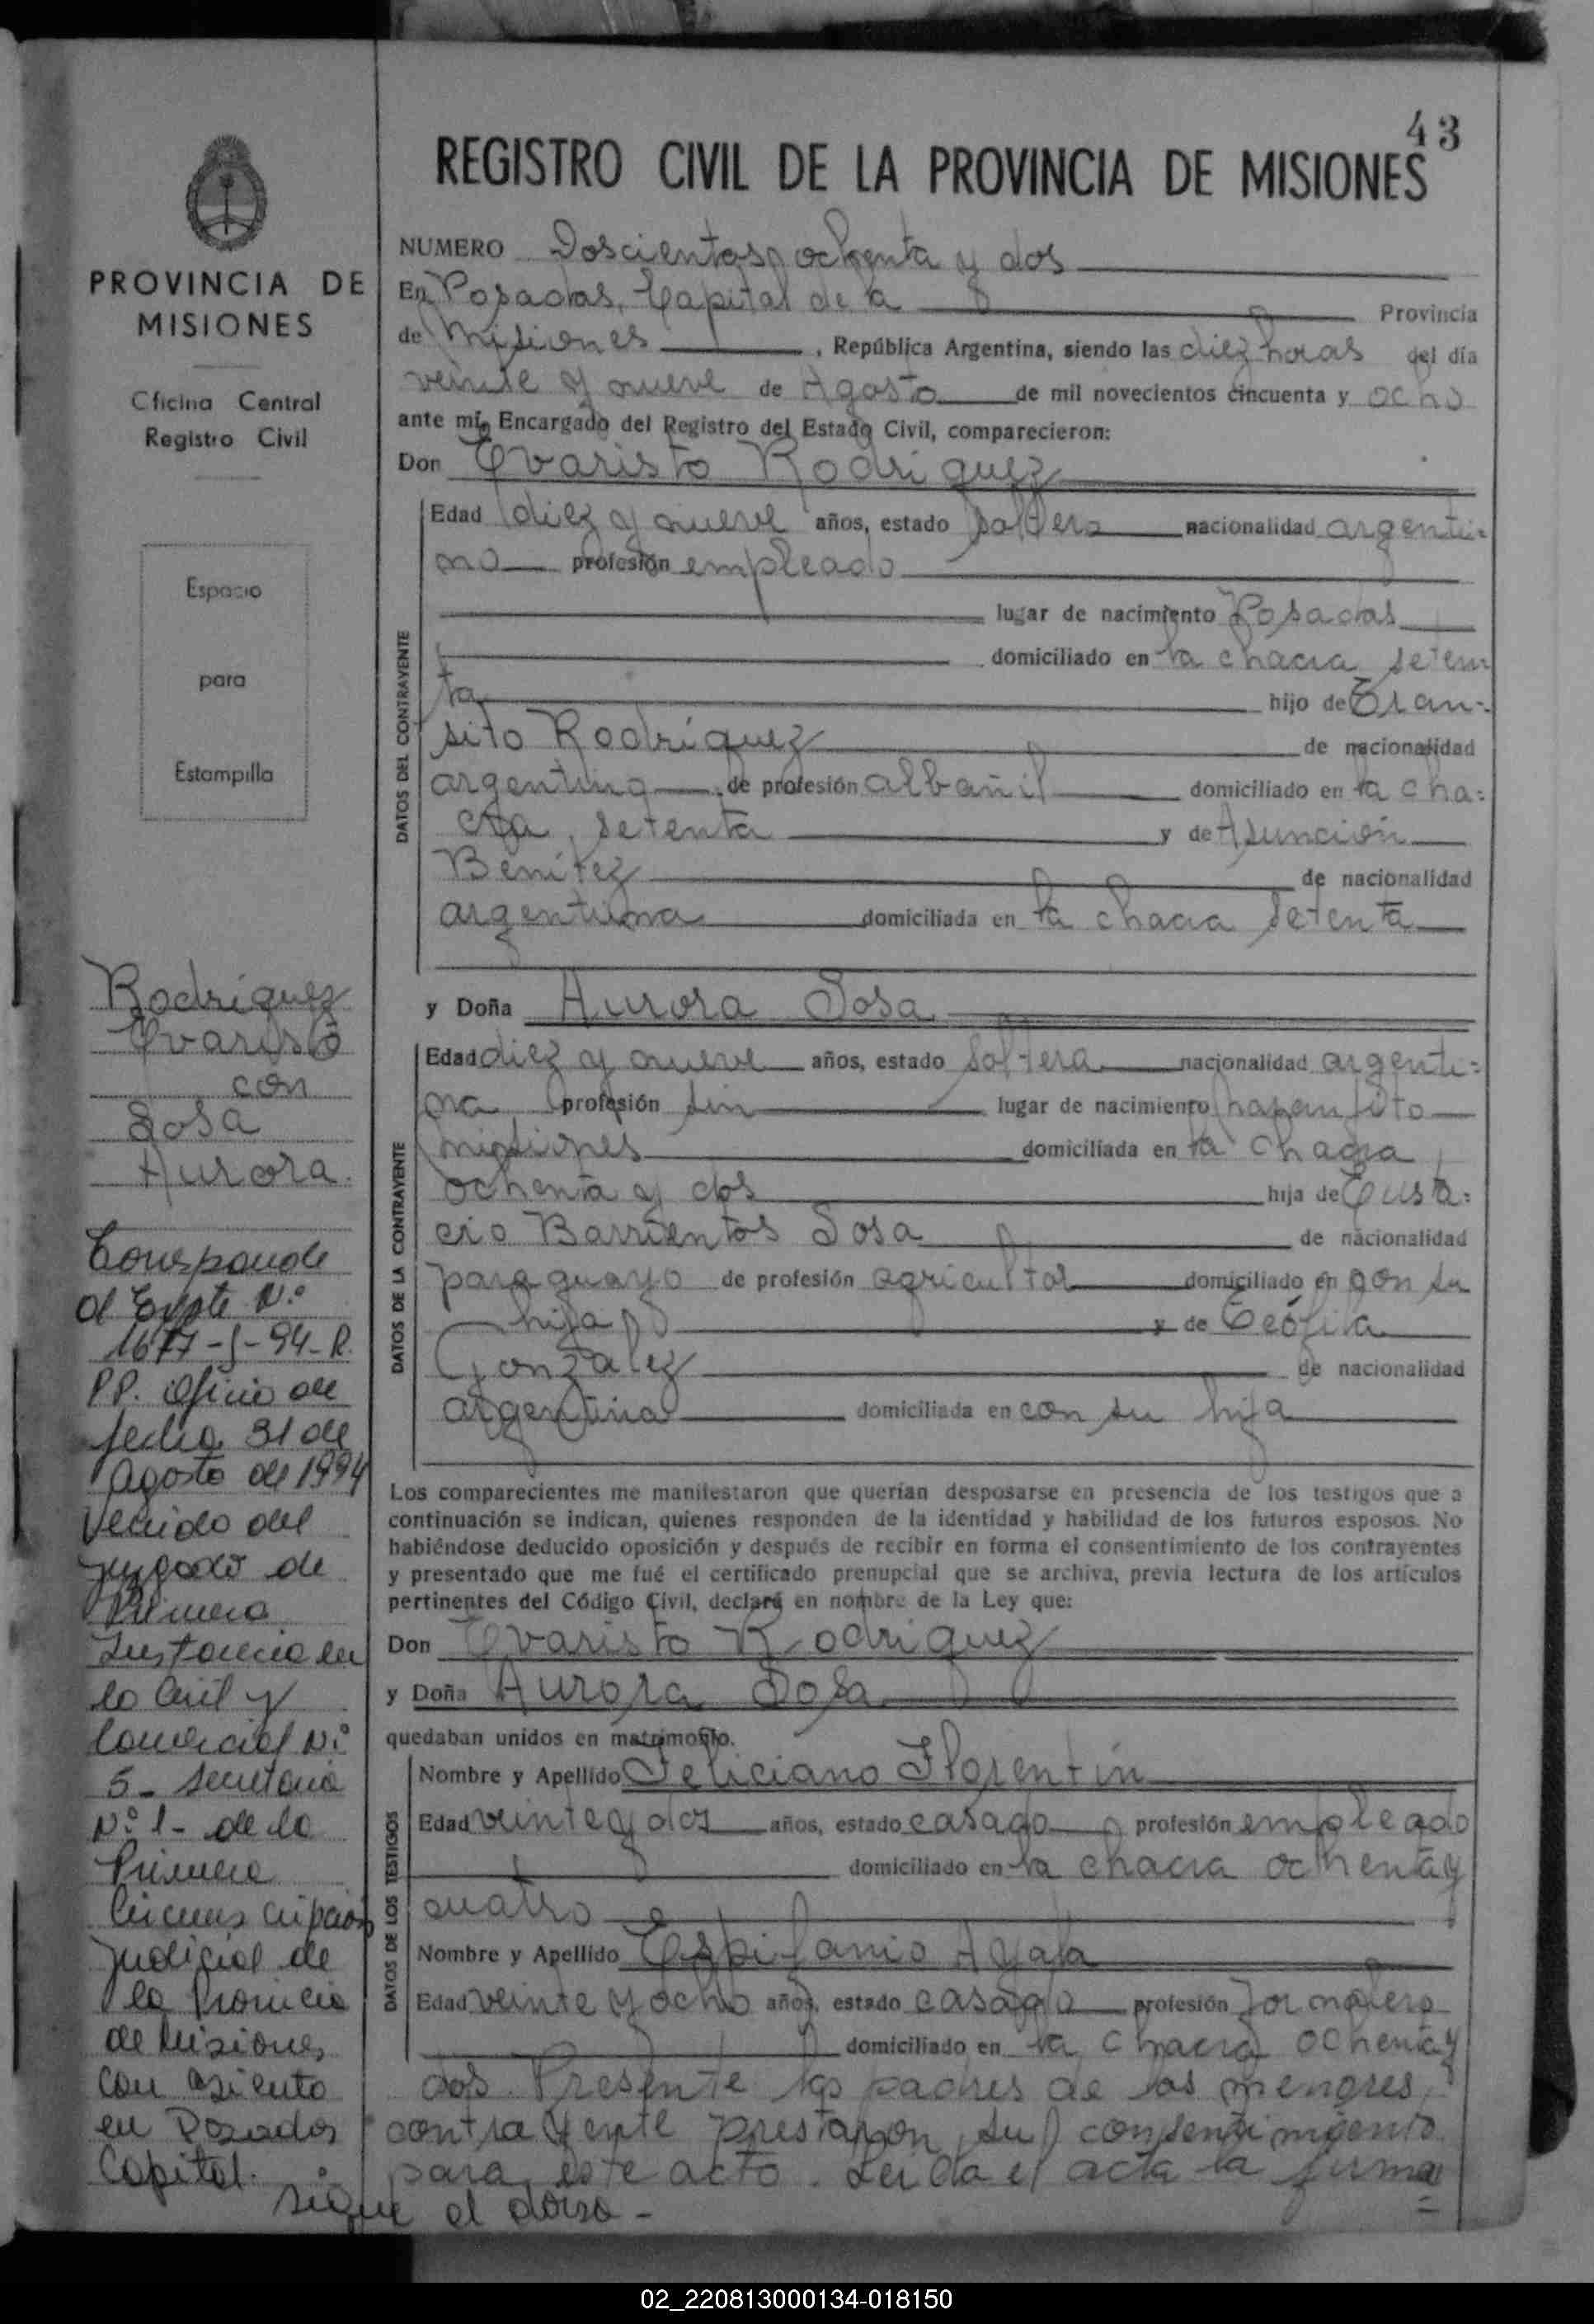 43
REGISTRO CIVIL DE LA PROVINCIA DE MISIONES
PROVINCIA DE
MISIONES
Oficina Central
Registro Civil
Espacio
para
Estampilla
Rodríguez
Evaristo
con
Sosa
Aurora.
Corresponde
al Expte N.º
1677-S-94-R.
P.P. Oficio de
fecha 31 de
Agosto de 1994
Venido del
Juzgado de
Primera
Instancia en
lo Civil y
Comercial N.º
5- Secretaria
N.º 1- de la
Primera
Circunscripción
Judicial de
la Provincia
de Misiones
con asiento
en Posadas
Capital.
sigue al dorso -
NUMERO Doscientos ochenta y dos
En Posadas, Capital de la Provincia
de Misiones, República Argentina, siendo las diez horas del día
veinte y nueve de Agosto de mil novecientos cincuenta y ocho
ante mí, Encargado del Registro del Estado Civil, comparecieron:
Don Evaristo Rodriguez
DATOS DEL CONTRAYENTE
Edad diez y nueve años, estado soltero nacionalidad argenti=
no profesión empleado
lugar de nacimiento Posadas
domiciliado en la chacra seten
ta hijo de Tran=
sito Rodríguez de nacionalidad
argentino de profesión albañil domiciliado en la cha=
cra, setenta y de Asunción
Benítez de nacionalidad
argentina domiciliada en la chacra setenta
y Doña Aurora Sosa
DATOS DE LA CONTRAYENTE
Edad diez y nueve años, estado soltera nacionalidad argenti=
na profesión sin lugar de nacimiento
misiones domiciliada en la chacra
ochenta y dos hija de Eusta=
cio Barrientos Sosa de nacionalidad
paraguayo de profesión agricultor domiciliado en con su
hija y de Teófila
González de nacionalidad
argentina domiciliada en con su hija
Los comparecientes me manifestaron que querían desposarse en presencia de los testigos que a
continuación se indican, quienes responden de la identidad y habilidad de los futuros esposos. No
habiéndose deducido oposición y después de recibir en forma el consentimiento de los contrayentes
y presentado que me fué el certificado prenupcial que se archiva, previa lectura de los artículos
pertinentes del Código Civil, declaré en nombre de la Ley que:
Don Evaristo Rodriguez
y Doña Aurora Sosa
quedaban unidos en matrimonio.
DATOS DE LOS TESTIGOS
Nombre y Apellido Feliciano Florentín
Edad veinte y dos años, estado casado profesión empleado
domiciliado en la chacra ochenta y
cuatro
Nombre y Apellido Espifanio Ayala
Edad veinte y ocho años, estado casado profesión Jornalero
domiciliado en la chacra ochenta y
dos. Presente los padres de los menores,
contrayente prestaron su consentimiento
para este acto. Leida el acta la firma
02_220813000134-018150